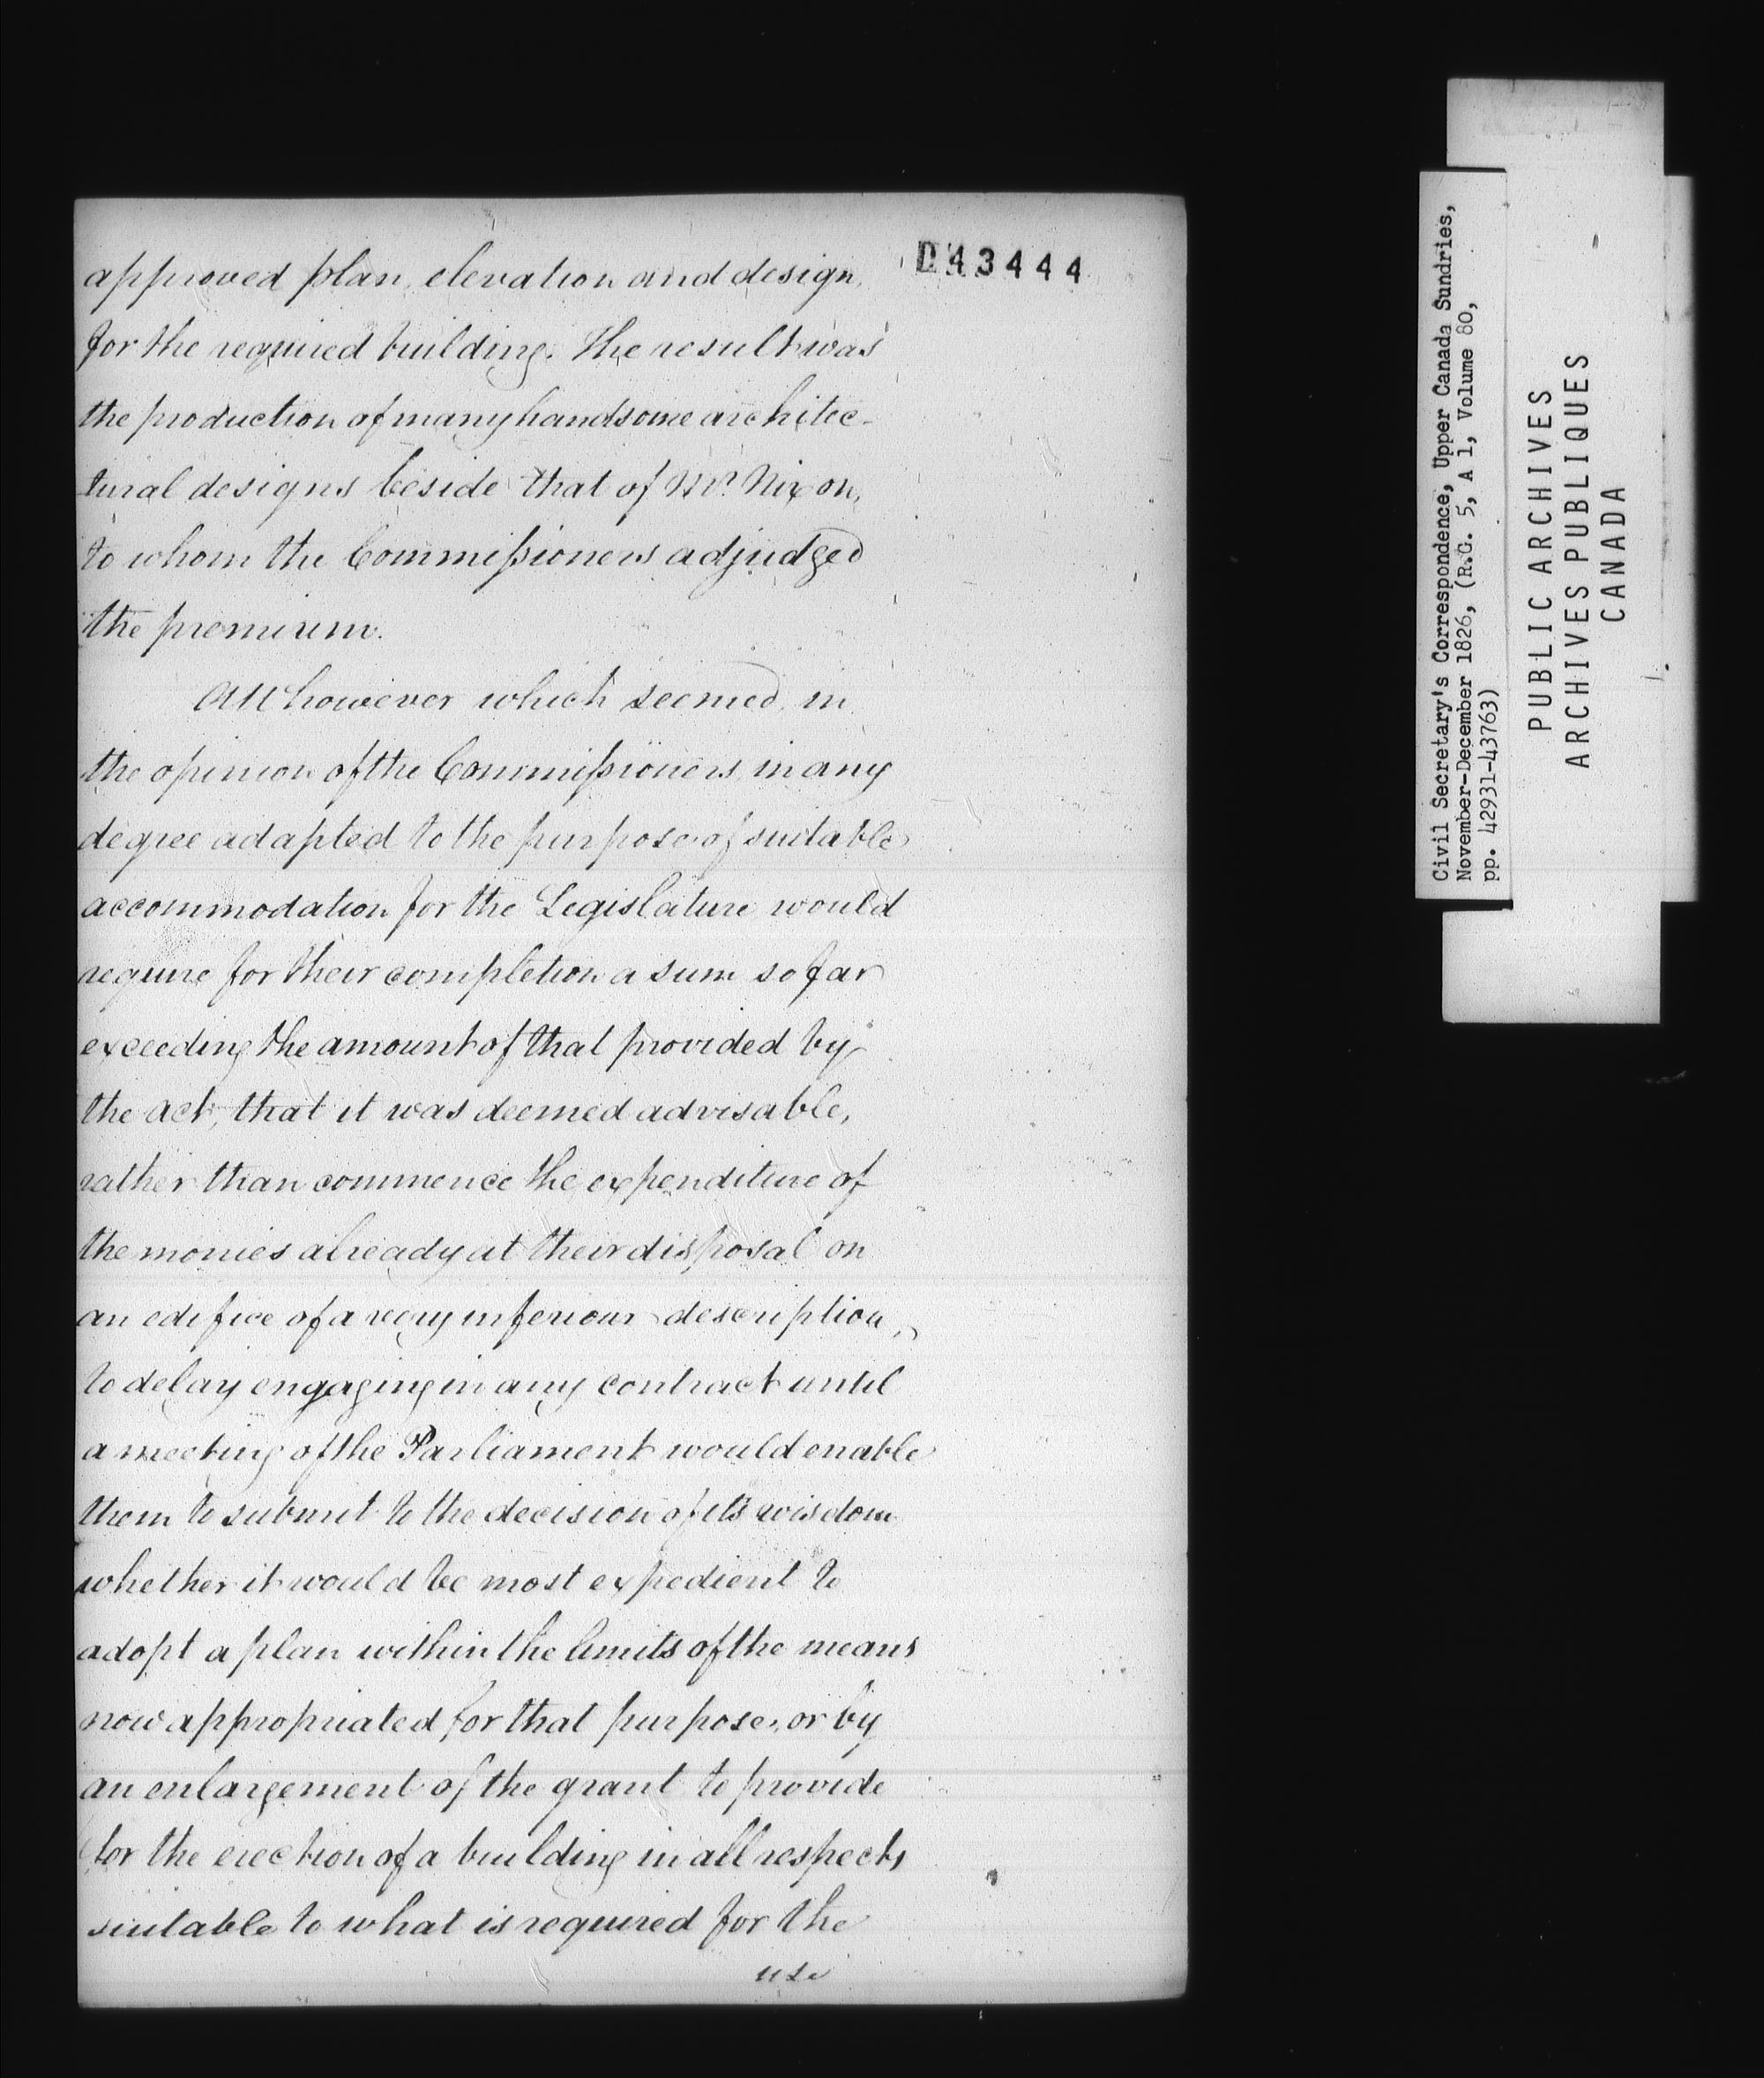 D43444
approved plan, elevation and design,
for the required building. The result was
the production of many handsome architec-
tural designs beside that of Mr. Nixon,
to whom the Commissioners adjudged
the premium.
All however which seemed, in
the opinion of the Commissioners, in any
degree adapted to the purpose of suitable
accommodation for the Legislature would
require for their completion a sum so far
exceeding the amount of that provided by
the act, that it was deemed advisable,
rather than commence the expenditure of
the monies already at their disposal on
an edifice of a very inferiour description,
to delay engaging in any contract until
a meeting of the Parliament would enable
them to submit to the decision of its wisdom
whether it would be most expedient to
adopt a plan within the limits of the means
now appropriated for that purpose, or by
an enlargement of the grant to provide
for the erection of a building in all respects
suitable to what is required for the
use
Civil Secretary's Correspondence, Upper Canada Sundries,
November-December 1826, (R.G. 5, A 1, Volume 80,
pp. 42931-43763)
PUBLIC ARCHIVES
ARCHIVES PUBLIQUES
CANADA